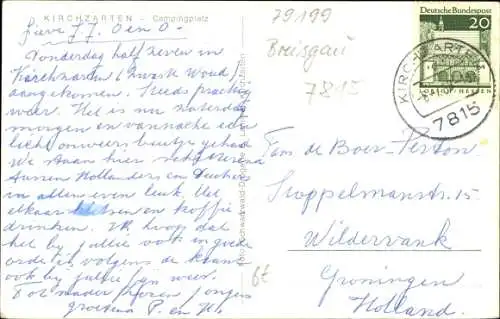 KIRCHZARTEN - Campingplatz
Lieve J.J. O en O -
Donderdag half zeven in
Kirchzarten (Zwarte Woud)
aangekomen. Steeds prachtig
weer. Het is nu zaterdag
morgen en vannacht een
licht onweers buitje gehad
We staan hier net
Aussen Hollanders en Duitsers
in allen even leuk. Met
elkaar en koffie
drinken. Ik hoop dat
het bij jullie ook in goede
orde is volgens de krant
ook bij jullie fijn weer.
Tot nader horen jongens
groetena P. en
79199
Breisgau
7815
Deutsche Bundespost
20
LORSCH/HESSEN
KIRCHZARTEN
7815
Fam de Boer-
Stoppelmanstr. 15
Wildervank
Groningen
Holland.
6t